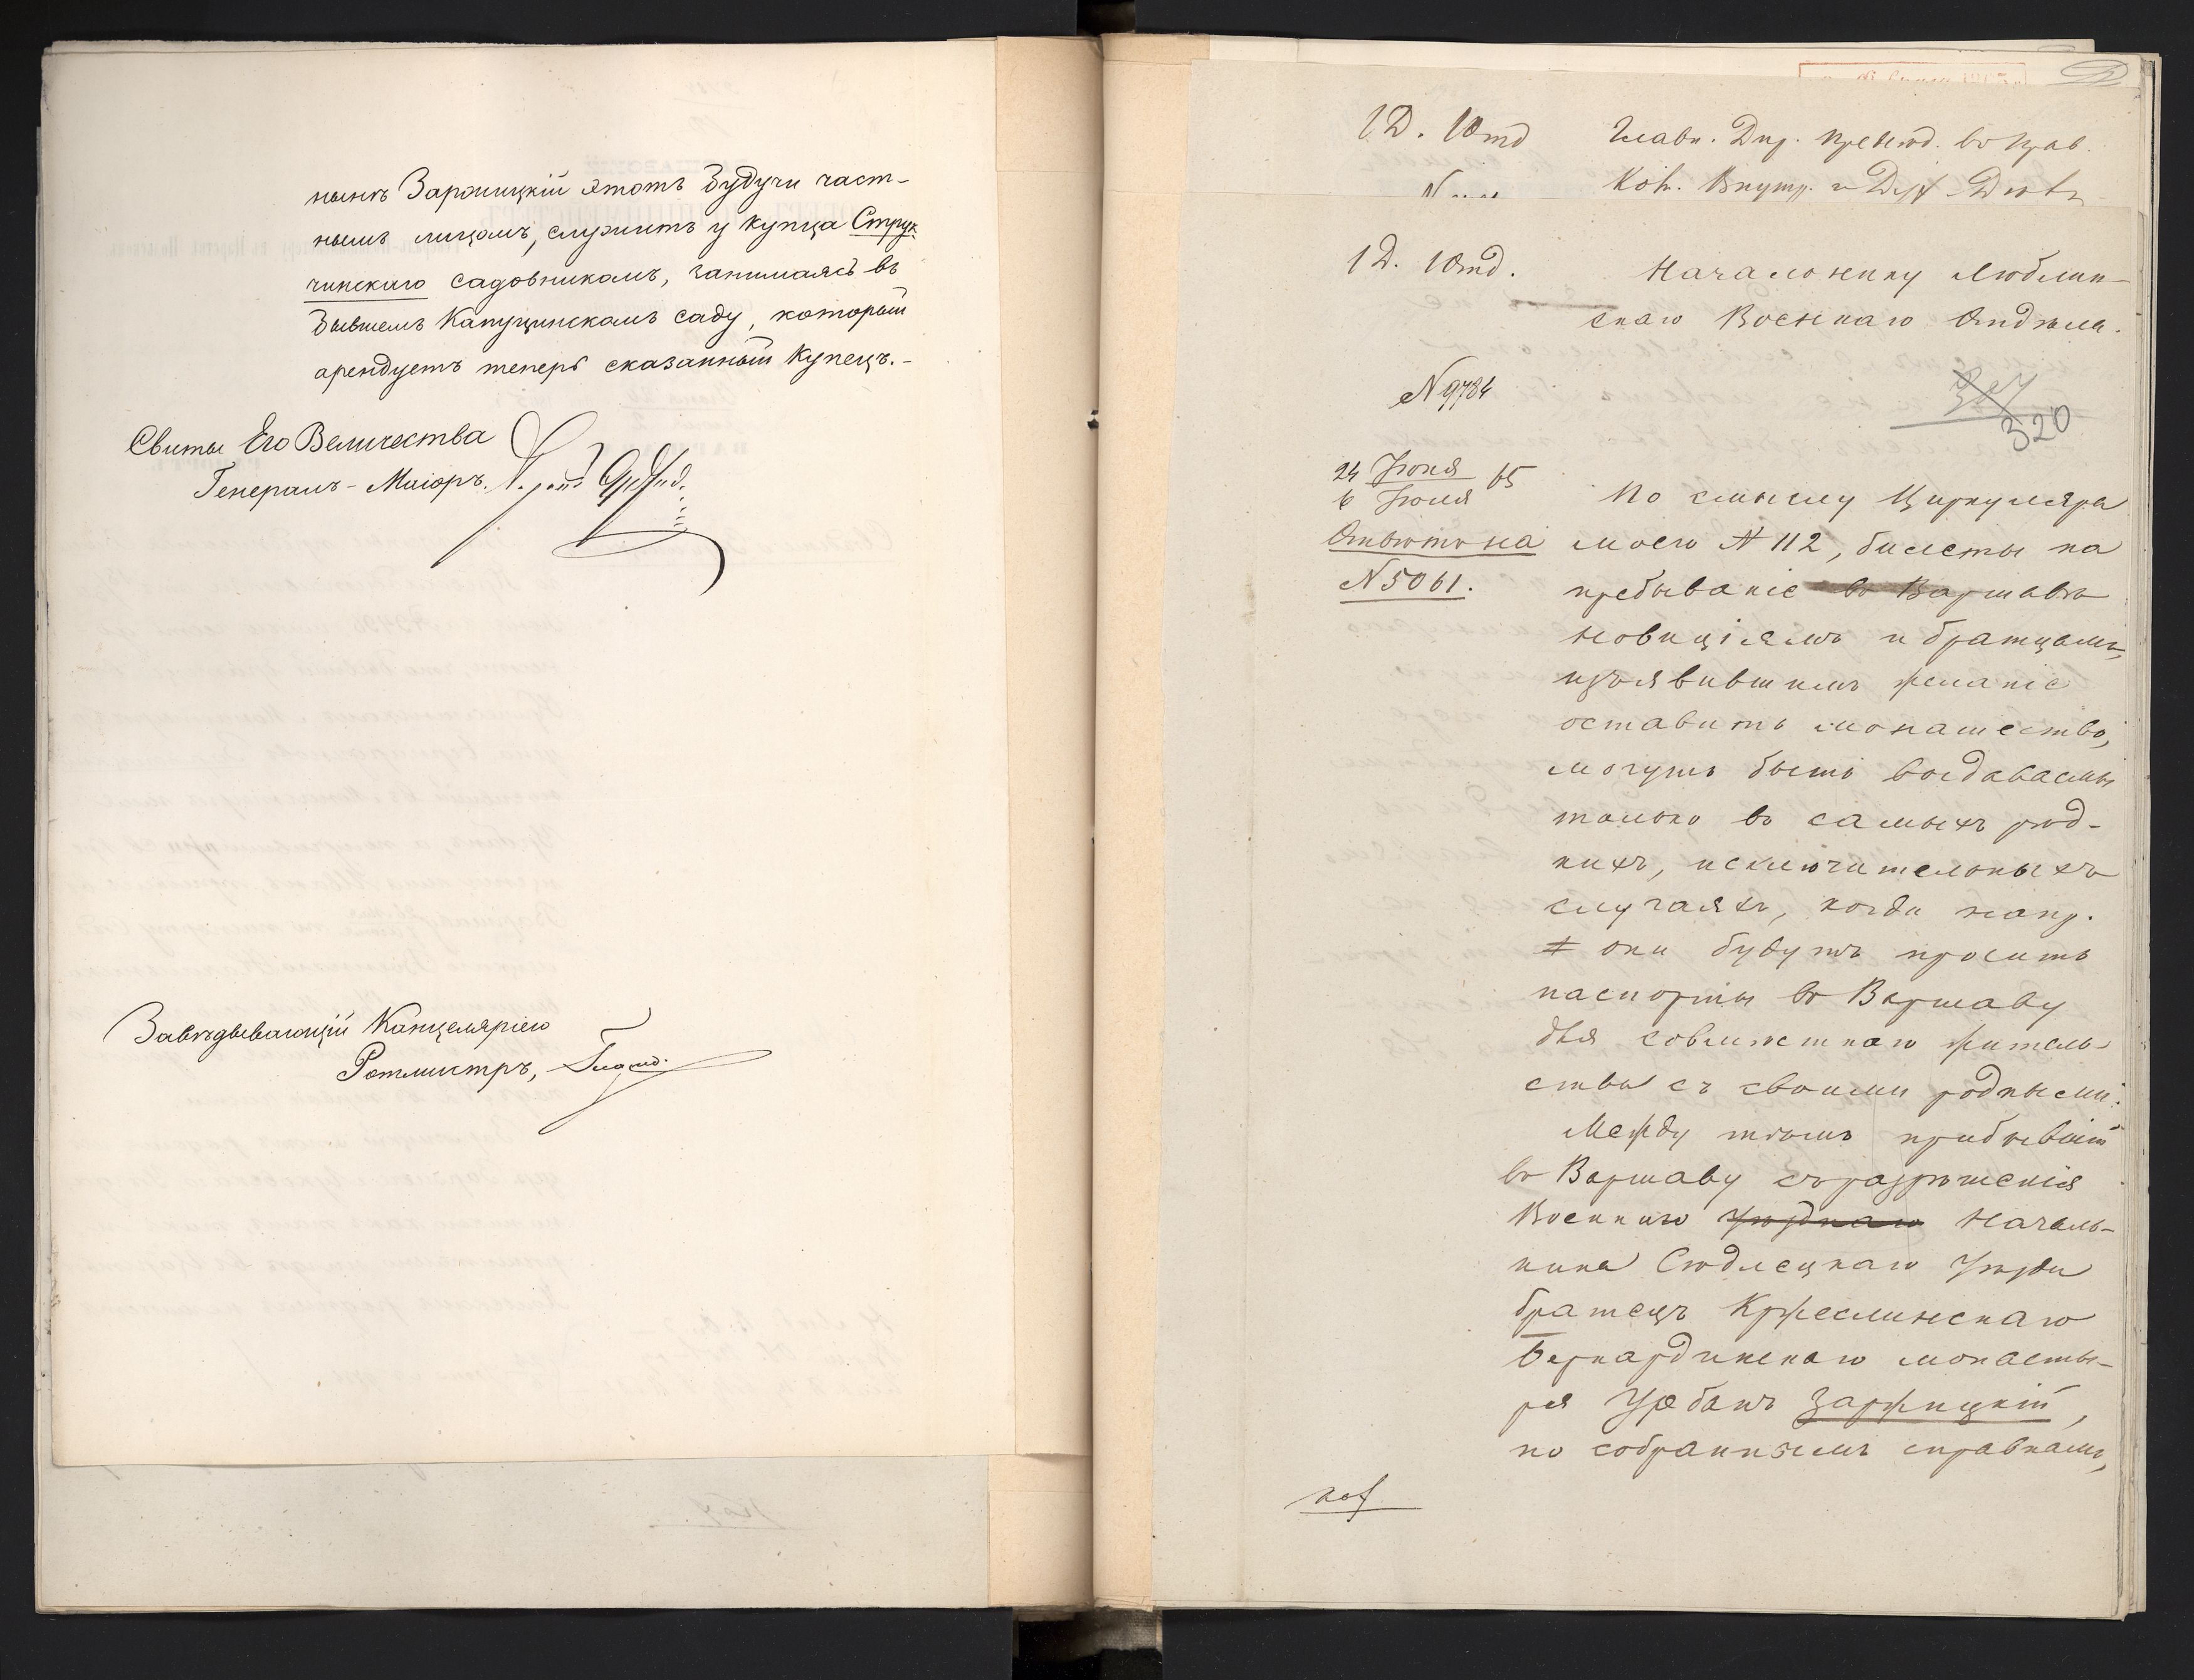 нынѣ Заржицкій этотъ будучи част-
нымъ лицомъ, служитъ у купца Струк-
чинскаго садовникомъ, занимаясь въ
бывшемъ Капуцинскомъ саду, который
арендуетъ теперь сказанный купецъ.-
Свиты Его Величества
Генералъ-Маіоръ,
Завѣдывающій Канцеляріею
Ротмистръ,
1 Д. 1 Отд
Главн. Дир. Предсѣд. въ Прав.
Ком. Внутр. и Дух. Дѣлъ
1 Д. 1 Отд.
Начальнику Люблин-
скаго Военнаго Отдѣла.
N 9784
320
24 Іюня
6 Іюля 65
Отвѣтъ на
N 5061.
По смыслу Циркуляра
моего N 112, билеты на
пребываніе въ Варшавѣ
новиціямъ и братцамъ,
изъявившимъ желаніе
оставить монашество,
могутъ быть выдаваемы
только въ самыхъ рѣд-
кихъ, исключительныхъ
случаяхъ, когда напр.
они будутъ просить
паспорты въ Варшаву
для совмѣстнаго житель-
ства съ своими родными.
Между тѣмъ прибывшій
въ Варшаву съ разрѣшенія
Военнаго Уѣзднаго Началь-
ника Сѣдлецкаго Уѣзда
братецъ Кржеслинскаго
Бернардинскаго монасты-
ря Урбанъ Заржицкій,
по собраннымъ справкамъ,